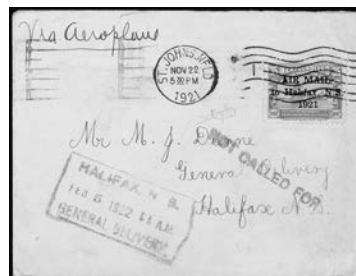 Via Aeroplane
ST. JOHN'S. NFLD
NOV 22
5:30 PM
1921
AIR MAIL
to Halifax, N.S.
1921
Mr M. J.
General Delivery
NOT CALLED FOR
Halifax N.S.
HALIFAX N. S.
FEB 5 1922
GENERAL DELIVERY